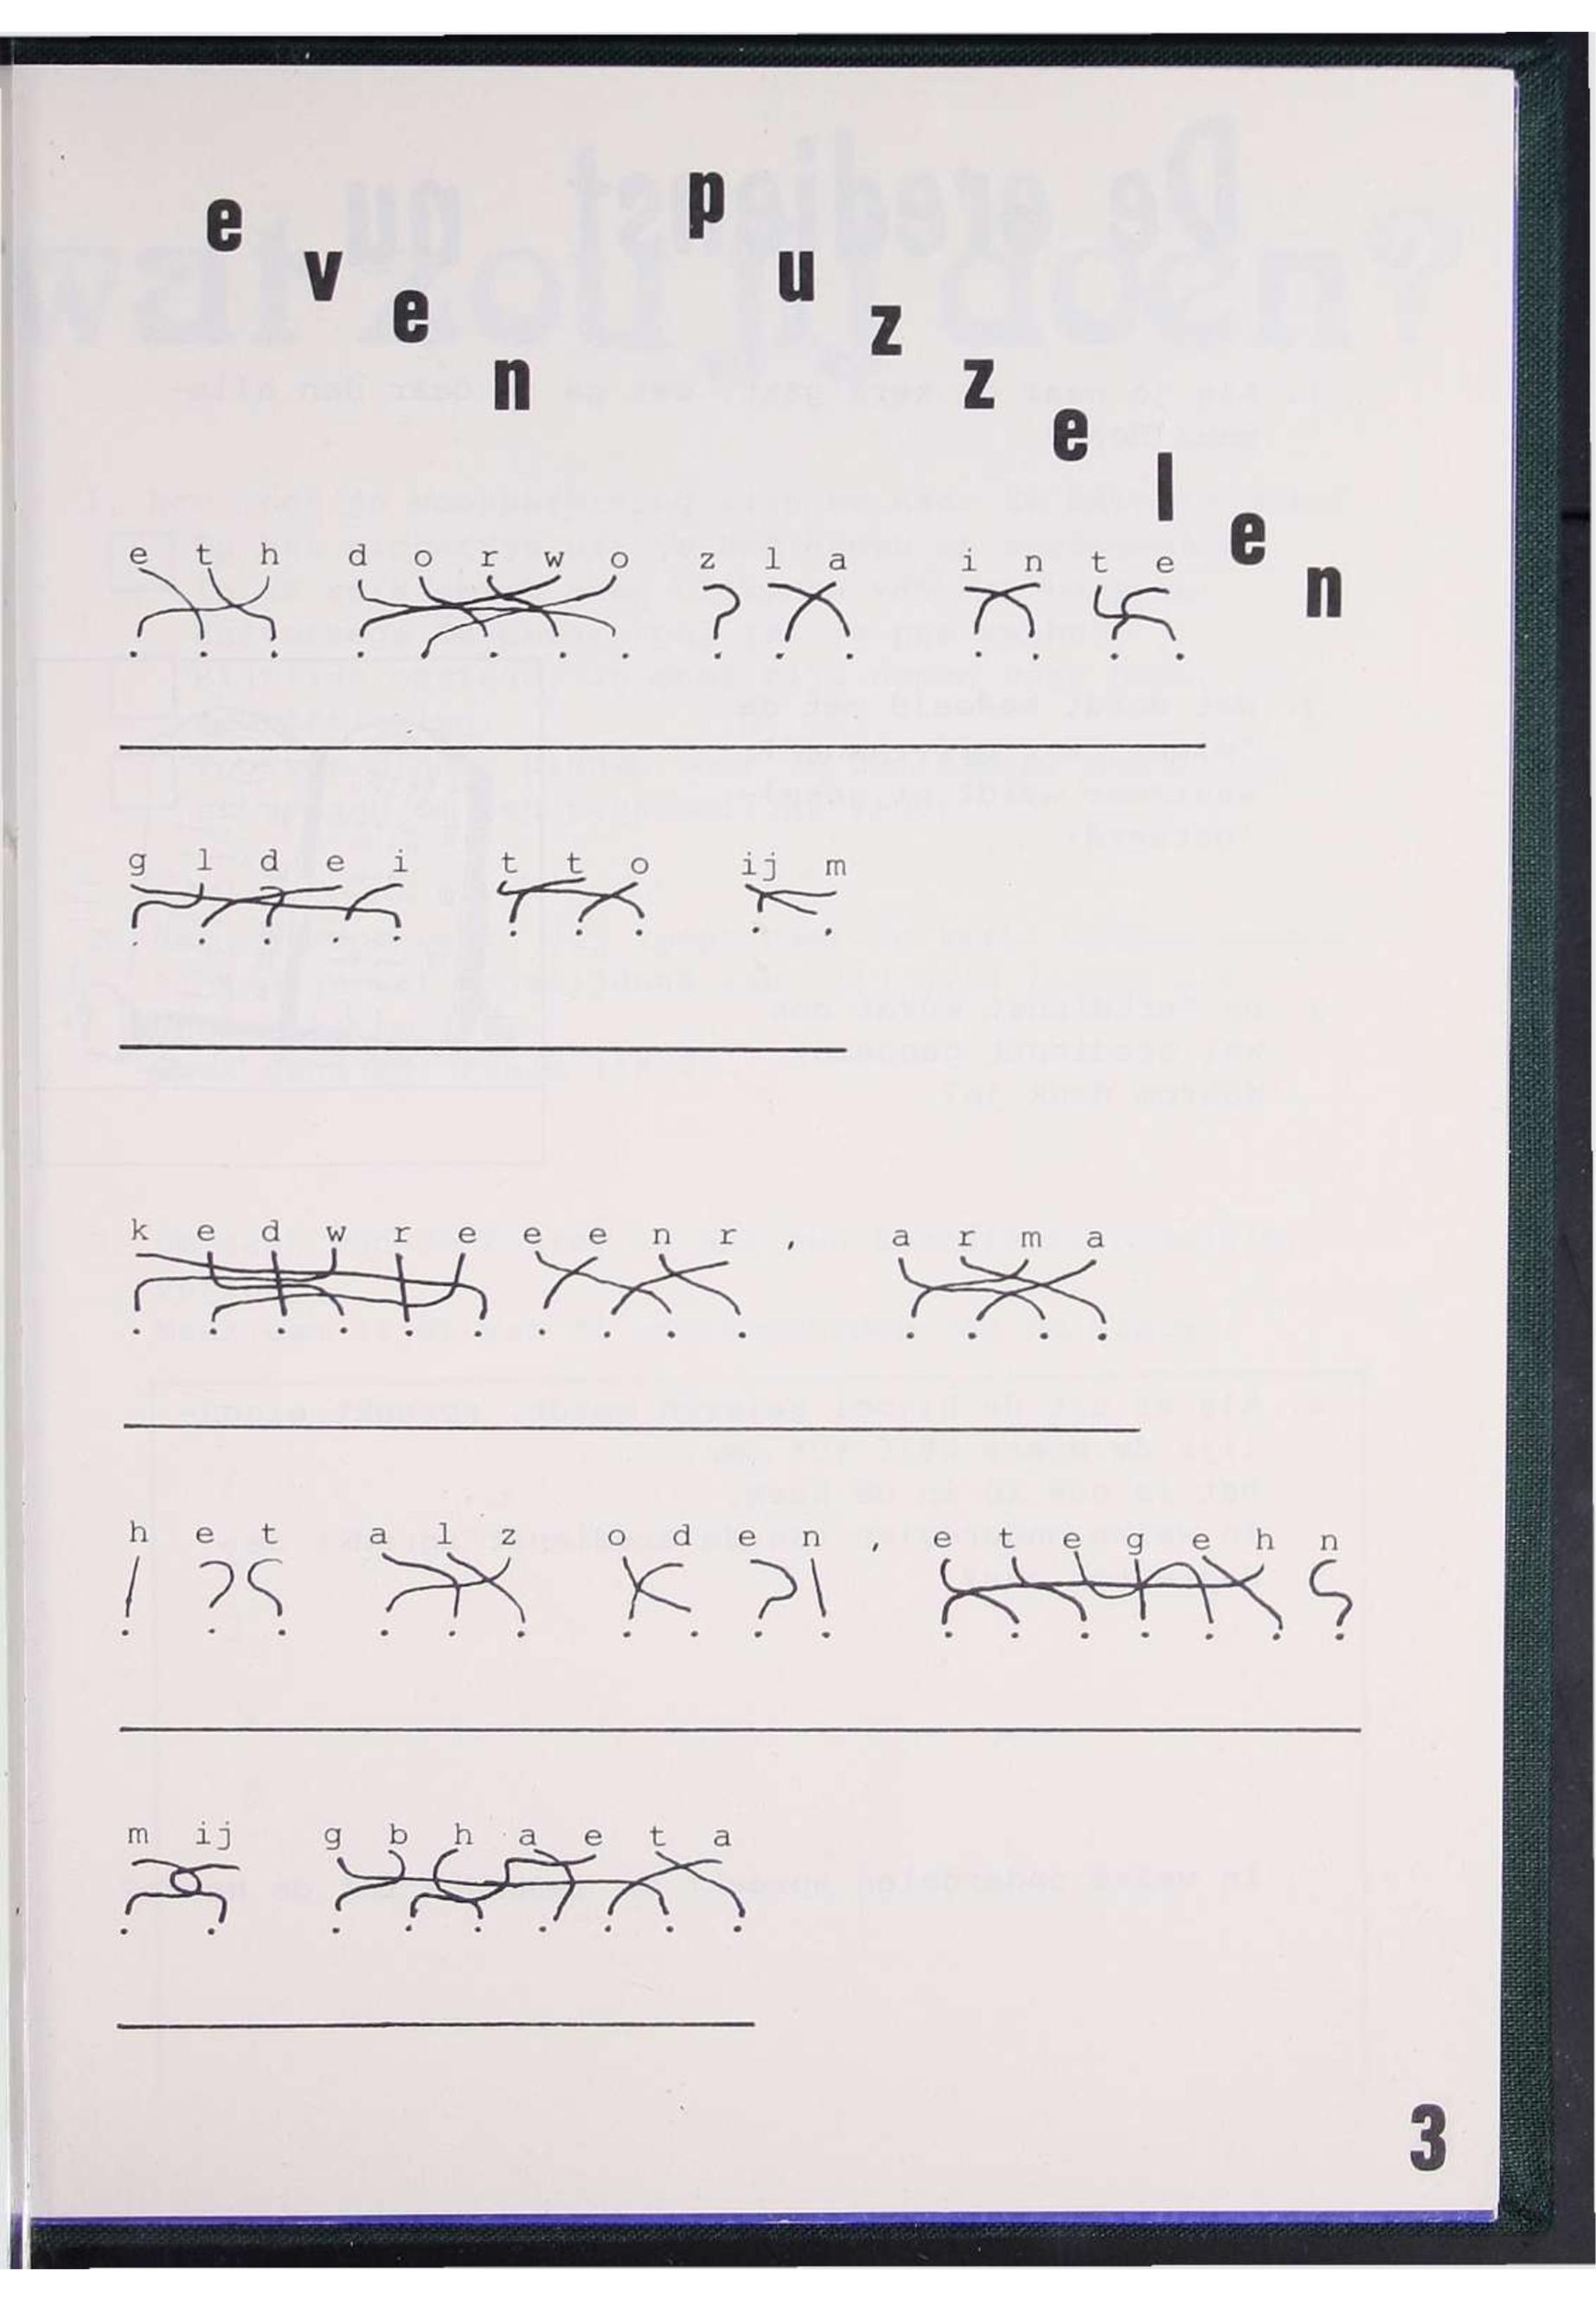 even puzzelen
eth dorwo zla inte
gldei tto ijm
kedwreeenr, arma
het alz oden, etegehn
mij gbhaeta
3